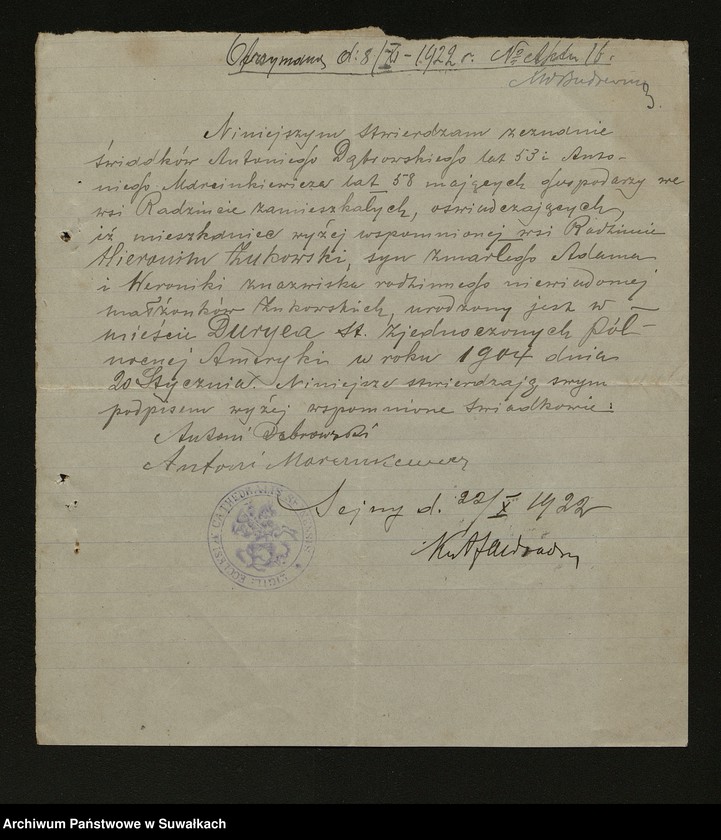 Otrzymano d: 8/XI - 1922 r. No Aktu 16.
Niniejszym stwierdzam zeznanie
świadków Antoniego Dąbrowskiego lat 53 i Anto-
niego Marcinkiewicza lat 58 mających gospodarzy we
wsi Radziucie zamieszkałych, oswiadczających,
iż mieszkaniec wyżej wspomnionej wsi Radziucie
Hieronim Żukowski, syn zmarłego Adama
i Weroniki z nazwiska rodzinnego niewiadomej
małżonków Żukowskich, urodzony jest w
mieście Duryea St. Zjednoczonych Pół-
nocnej Ameryki w roku 1904 dnia
20 Stycznia. Niniejsze stwierdzają swym
podpisem wyżej wspomnione świadkowie:
Antoni Dąbrowski
Antoni Marcinkewicz
Sejny d. 22/X 1922
SIGILL: ECCLESIÆ CATHEDRALIS
Archiwum Państwowe w Suwałkach